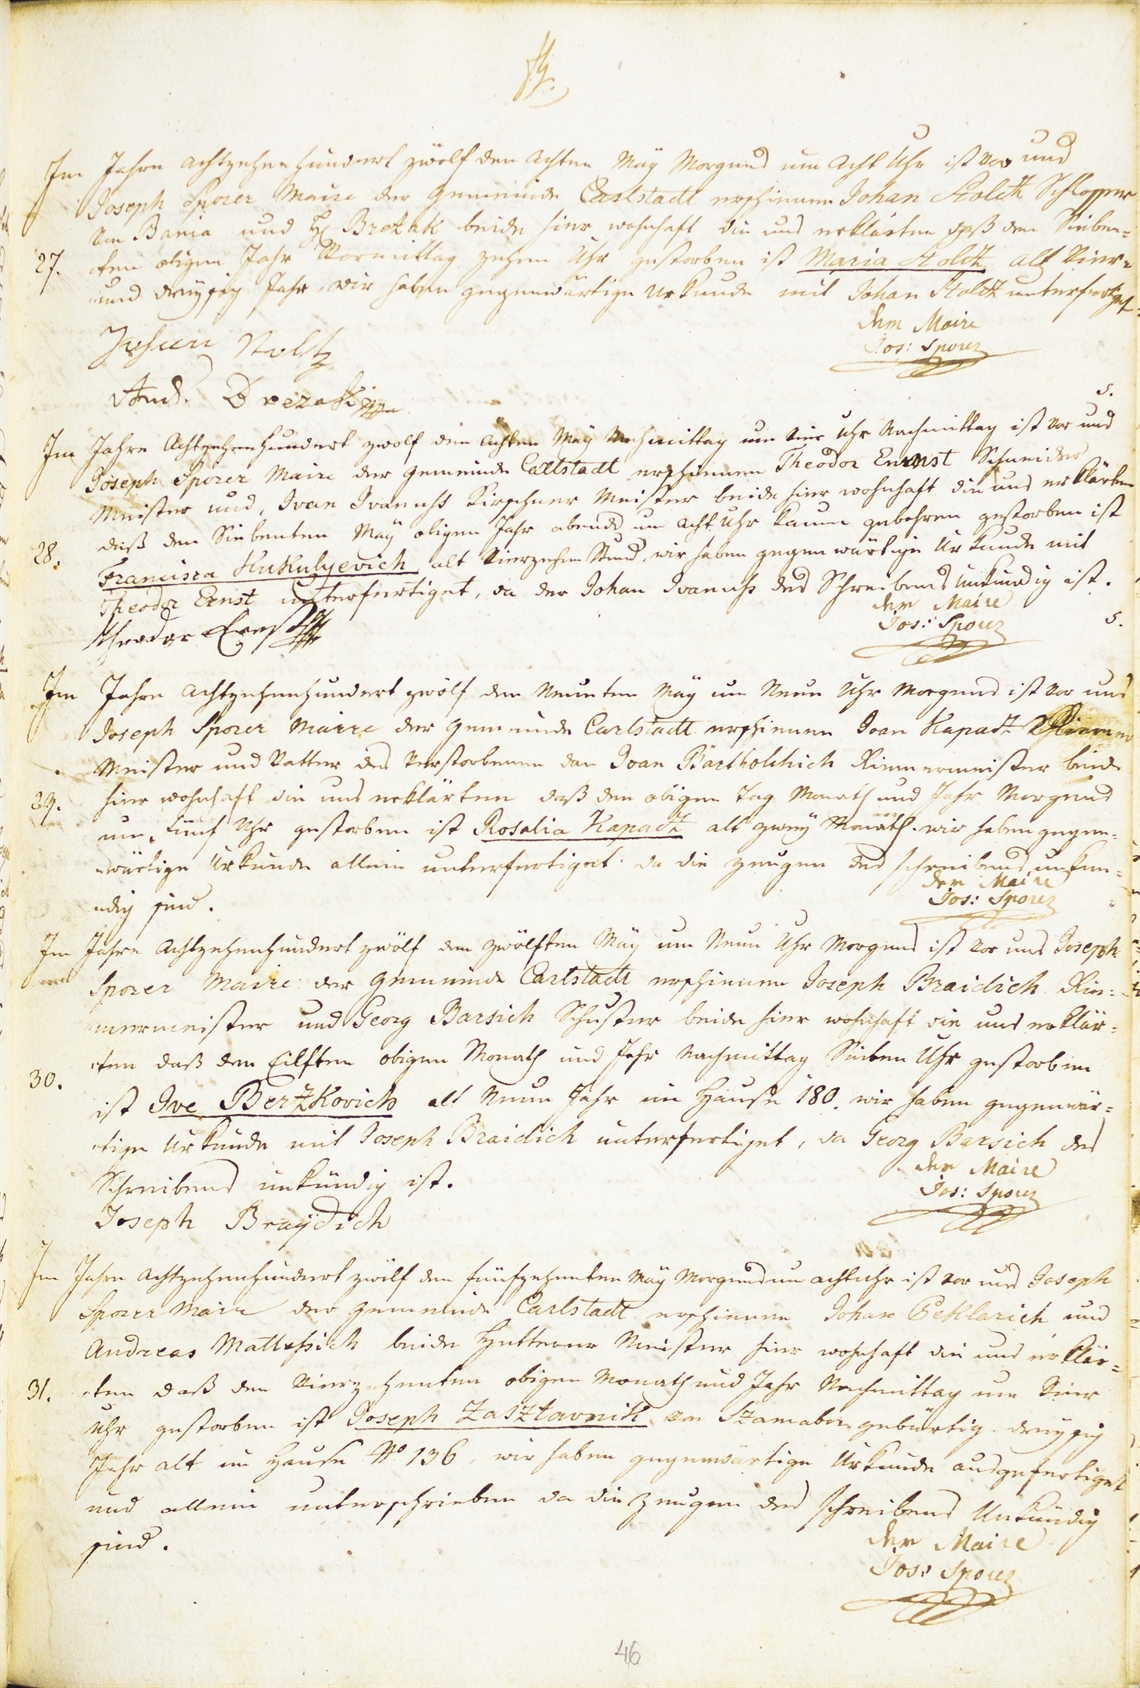 Im Jahre Achtzehenhundert zwölf den Achten Maÿ Morgends um Acht Uhr ist vor und
Joseph Sporer Maire der Gemeinde Carlstadt erschienen Johan Stoldt Schlosser
von Bania und Brežak beide hier wohnhaft die uns erklärten daß den Sieben=
27. =ten obigen Jahr Vormittag zehen Uhr gestorben ist Maria Stoldt alt Vier=
und dreÿßig Jahr, wir haben gegenwärtige Urkunde mit Johan Stoldt unterfertiget.
Der Maire
Jos: Sporer
Johan Stoltz
And. Drezaki
5.
Im Jahre Achtzehenhundert zwölf den Achten Maÿ Nachmittag um Vier Uhr Nachmittag ist vor und
Joseph Sporer Maire der Gemeinde Calstadt erschienen Theodor Ernst Schneider
Meister und, Ivan Ivanuss Kirschner Meister beide hier wohnhaft die uns erklärten
daß den Siebenten Maÿ obigen Jahr abends um Acht Uhr kaum gebohren gestorben ist
28. Francisca Kukulyevich alt Vierzehen Stund, wir haben gegenwärtige Urkunde mit
Theodor Ernst unterfertiget, da der Johan Ivanuss des Schreibens Unkundig ist.
der Maire
Jos: Sporer
5.
Theodor Ernst
Im Jahre Achtzehenhundert zwölf den Neunten Maÿ um Neun Uhr Morgends ist vor uns
Joseph Sporer Maire der Gemeinde Carlstadt erschienen Ivan Kapatz Riemer
Meister und Vatter des Verstorbenen dan Ivan Bartholchich Riemermeister beide
29. hier wohnhaft die uns erklärten daß den obigen Tag Monath und Jahr Morgends
um Fünf Uhr gestorben ist Rosalia Kapatz alt zweÿ Monath. wir haben gegen=
=wärtige Urkunde allein unterfertiget da die Zeugen des schreibens unkun=
=dig sind.
der Maire
Jos: Sporer
Im Jahre Achtzehenhundert zwölf den zwölften Maÿ um Neun Uhr Morgends ist vor uns Joseph
Sporer Maire der Gemeinde Carlstadt erschienen Joseph Braidich Rie=
=mermeister und Georg Barsich Schuster beide hier wohnhaft die uns erklär=
=ten daß den Eilften obigen Monath und Jahr Nachmittag Sieben Uhr gestorben
30. ist Ive Bertzkovich alt Neun Jahr im Hause 180. wir haben gegenwär=
=tige Urkunde mit Joseph Braidich unterfertiget, da Georg Barsich des
Schreibens unkündig ist.
der Maire
Jos: Sporer
Joseph Braÿdich
Im Jahre Achtzehenhundert zwölf den fünfzehenten Maÿ Morgends um acht Uhr ist vor uns Joseph
Sporer Maire der Gemeinde Carlstadt erschienen Johan Peklarich und
Andreas Mattessich beide Hutterer Meister hier wohnhaft die uns erklär=
31. =ten daß den Vierzehenten obigen Monath und Jahr Nachmittag um Vier
Uhr gestorben ist Joseph Zasztavnik von Szamabor gebürtig dreÿßig
Jahr alt im Hause No 136, wir haben gegenwärtige Urkunde ausgefertiget
und allein unterschrieben da die Zeugen des schreibens Unkündig
sind.
der Maire
Jos: Sporer
46